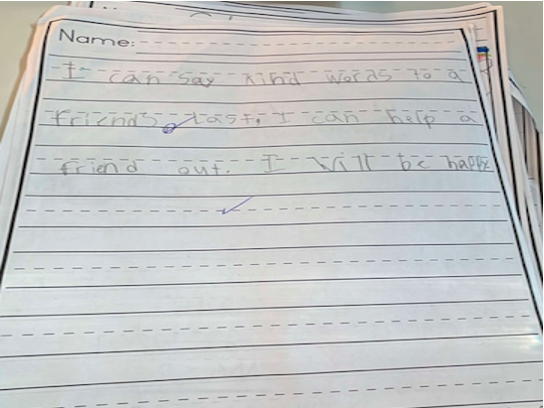 Name:
I can say kind words to a
friends. Last, I can help a
friend out. I will be happy